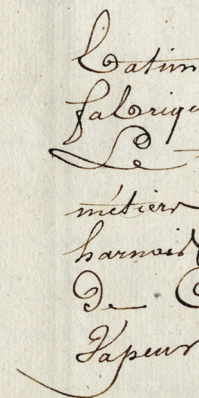 batim
fabriqu
Le
métiers
harnois
De
Vapeur